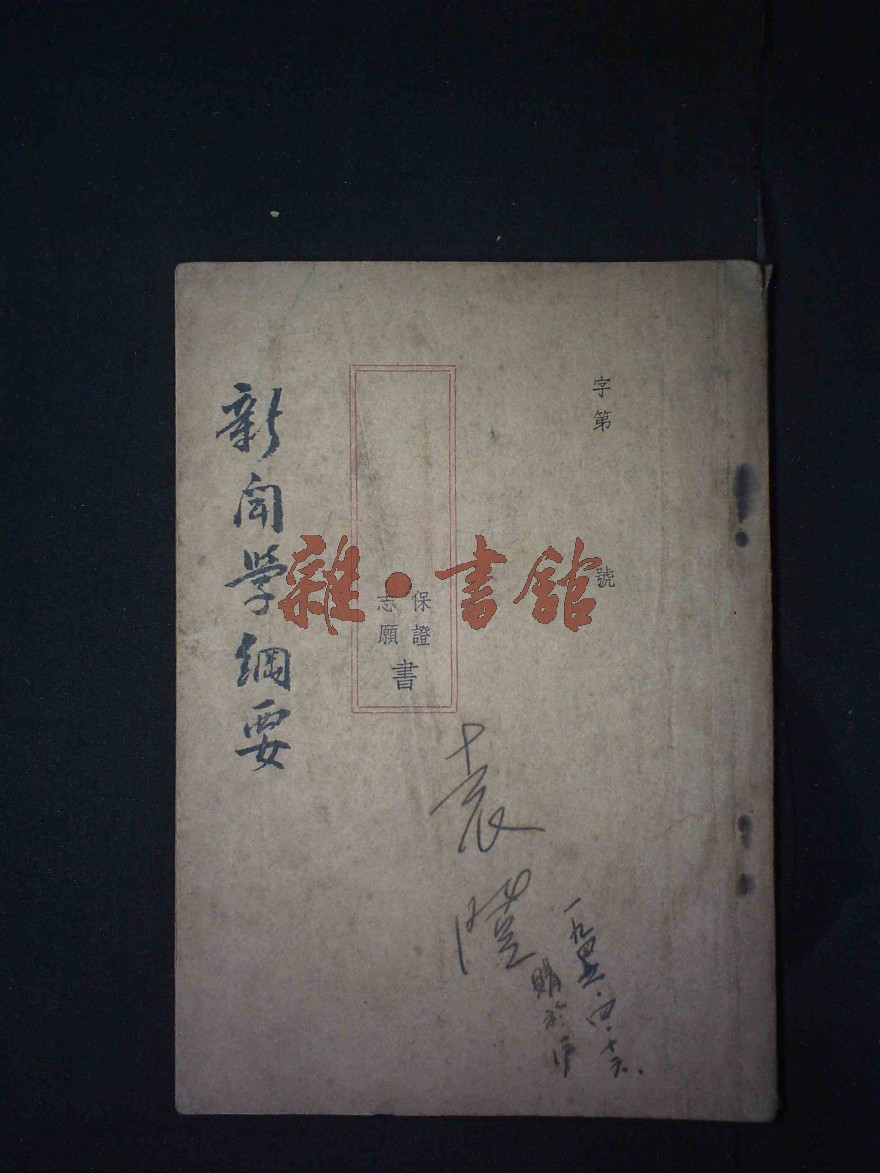 字第 號
保證
志願
書
新聞學綱要
雜·書館
袁
一九四五·四·十六.
購於